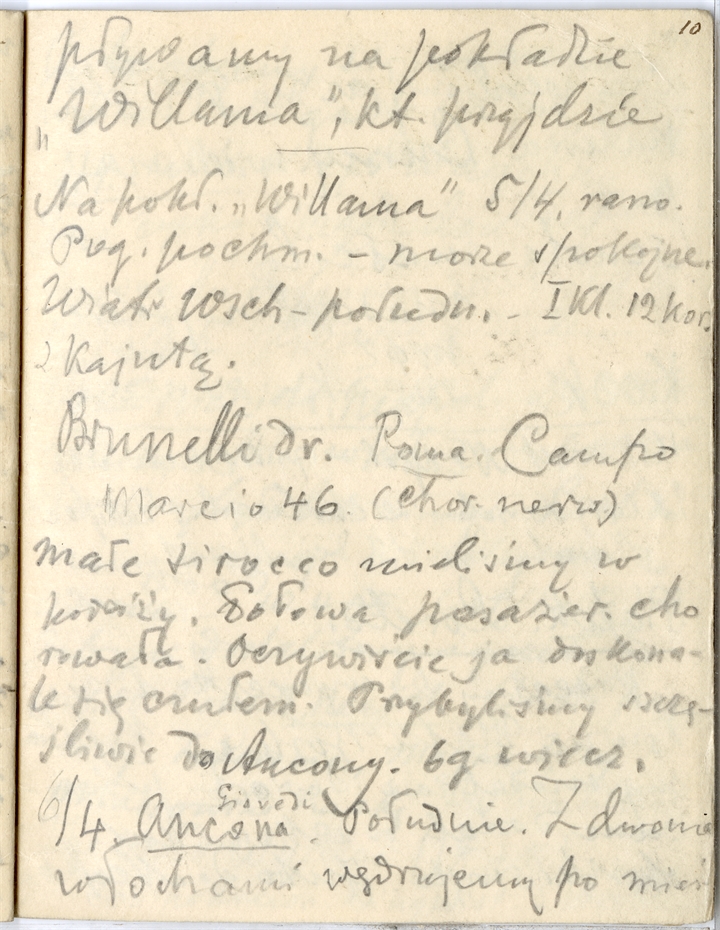 10
pływamy na pokładzie
„Willama", kt. przyjdzie
Na pokł. „Willama" 5/4. rano.
Pog. pochm. – morze spokojne.
Wiatr wsch-połudn. – I Kl. 12 kor.
z Kajutą.
Brunelli dr. Roma. Campo
Marcio 46. (chor. nerw)
małe sirocco mieliśmy w
. Połowa pasażer. cho
rowała. Oczywiście ja doskona-
le się czułem. Przybyliśmy szczę-
śliwie do Ancony. 6g wiecz.
Giovedi
6/4. Ancona. Południe. Z dwoma
włochami wędrujemy po mieś